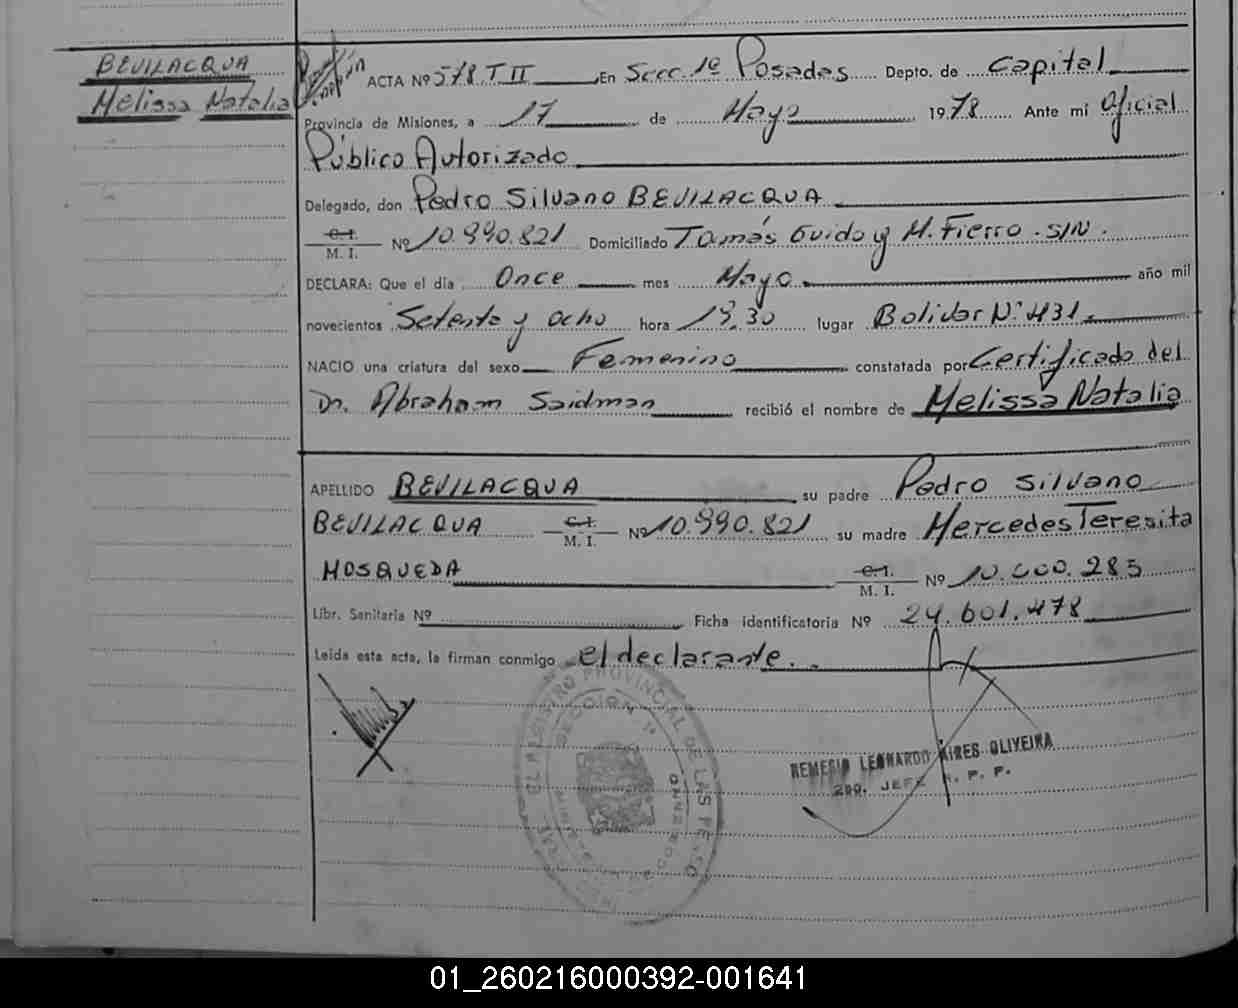 BEVILACQUA
Melissa Natalia
ACTA Nº 578 T II En Secc. 1º Posadas Depto. de Capital
Provincia de Misiones, a 17 de Mayo 1978 Ante mi Oficial
Público Autorizado
Delegado, don Pedro Silvano BEVILACQUA
C.I.
M. I. Nº 10.990.821 Domiciliado Tomás Guido y M. Fierro S/N.
DECLARA: Que el día Once mes Mayo año mil
novecientos Setenta y ocho hora 19.30 lugar Bolivar Nº 431.
NACIO una criatura del sexo Femenino constatada por Certificado del
Dr. Abraham Saidman recibió el nombre de Melissa Natalia
APELLIDO BEVILACQUA su padre Pedro Silvano
BEVILACQUA C.I. M. I. Nº 10.990.821 su madre Mercedes Teresita
MOSQUEDA C.I. M. I. Nº 10.000.285
Libr. Sanitaria Nº Ficha identificatoria Nº 24.601.478
Leida esta acta, la firman conmigo el declarante.
REMESIO LEONARDO AIRES OLIVEIRA
2do. JEFE R. P. P.
REGISTRO PROVINCIAL DE LAS PERSO
SECCION 1ª
01_260216000392-001641